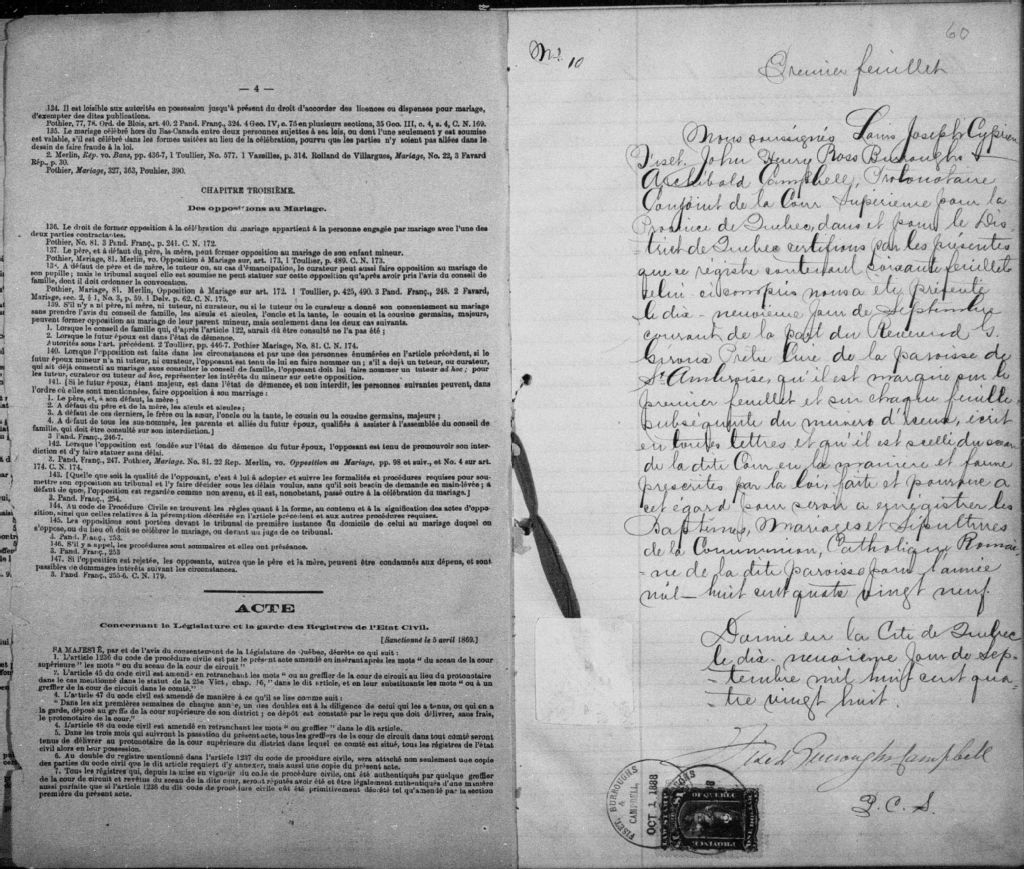 — 4 —
134. Il est loisible aux autorités en possession jusqu'à présent du droit d'accorder des licences ou dispenses pour mariage,
d'exempter des dites publications.
Pothier, 77, 78. Ord. de Blois, art. 40. 2 Pand. Franç., 324. 4 Geo. IV, c. 75 en plusieurs sections, 35 Geo. III, c. 4, s. 4, C. N. 169.
135. Le mariage célébré hors du Bas-Canada entre deux personnes sujettes à ses lois, ou dont l'une seulement y est soumise
est valable, s'il est célébré dans les formes usitées au lieu de la célébration, pourvu que les parties n'y soient pas allées dans le
dessein de faire fraude à la loi.
2. Merlin, Rép. vo. Bans, pp. 436-7, 1 Toullier, No. 577. 1 Vazeilles, p. 314. Rolland de Villargues, Mariage, No. 22, 3 Favard
Rép., p. 30.
Pothier, Mariage, 327, 363, Pouhier, 390.
CHAPITRE TROISIÈME.
Des oppositions au Mariage.
136. Le droit de former opposition à la célébration du mariage appartient à la personne engagée par mariage avec l'une des
deux parties contractantes.
Pothier, No. 81. 3 Pand. Franç., p. 241. C. N. 172.
137. Le père, et à défaut du père, la mère, peut former opposition au mariage de son enfant mineur.
Pothier, Mariage, 81. Merlin, vo. Opposition à Mariage sur art. 173, 1 Toullier, p. 489. C. N. 173.
138. A défaut de père et de mère, le tuteur ou, au cas d'émancipation, le curateur peut aussi faire opposition au mariage de
son pupille; mais le tribunal auquel elle est soumise ne peut statuer sur cette opposition qu'après avoir pris l'avis du conseil de
famille, dont il doit ordonner la convocation.
Pothier, Mariage, 81. Merlin, Opposition à Mariage sur art. 172. 1 Toullier, p. 425, 490. 3 Pand. Franç., 248. 2 Favard,
Mariage, sec. 2, § 1, No. 3, p. 59. 1 Delv. p. 62. C. N. 175.
139. S'il n'y a ni père, ni mère, ni tuteur, ni curateur, ou si le tuteur ou le curateur a donné son consentement au mariage
sans prendre l'avis du conseil de famille, les aïeuls et aïeules, l'oncle et la tante, le cousin et la cousine germains, majeurs,
peuvent former opposition au mariage de leur parent mineur, mais seulement dans les deux cas suivants.
1. Lorsque le conseil de famille qui, d'après l'article 122, aurait dû être consulté ne l'a pas été;
2. Lorsque le futur époux est dans l'état de démence.
Autorités sous l'art. précédent. 2 Toullier, pp. 446-7. Pothier Mariage, No. 81. C. N. 174.
140. Lorsque l'opposition est faite dans les circonstances et par une des personnes énumérées en l'article précédent, si le
futur époux mineur n'a ni tuteur, ni curateur, l'opposant est tenu de lui en faire nommer un; s'il a déjà un tuteur, ou curateur,
qui ait déjà consenti au mariage sans consulter le conseil de famille, l'opposant doit lui faire nommer un tuteur ad hoc; pour
les tuteur, curateur ou tuteur ad hoc, représenter les intérêts du mineur sur cette opposition.
141. [Si le futur époux, étant majeur, est dans l'état de démence, et non interdit, les personnes suivantes peuvent, dans
l'ordre où elles sont mentionnées, faire opposition à son mariage:
1. Le père, et, à son défaut, la mère;
2. A défaut du père et de la mère, les aïeuls et aïeules;
3. A défaut de ces derniers, le frère ou la sœur, l'oncle ou la tante, le cousin ou la cousine germains, majeurs;
4. A défaut de tous les sus-nommés, les parents et alliés du futur époux, qualifiés à assister à l'assemblée du conseil de
famille, qui doit être consulté sur son interdiction.]
3 Pand. Franç., 246-7.
142. Lorsque l'opposition est fondée sur l'état de démence du futur époux, l'opposant est tenu de promouvoir son interdiction
et d'y faire statuer sans délai.
3. Pand. Franç., 247. Pothier, Mariage. No. 81. 22 Rep. Merlin, vo. Opposition au Mariage, pp. 98 et suiv., et No. 4 sur art.
174. C. N. 174.
143. [Quelle que soit la qualité de l'opposant, c'est à lui à adopter et suivre les formalités et procédures requises pour soumettre
son opposition au tribunal et l'y faire décider sous les délais voulus, sans qu'il soit besoin de demande en main-levée; à
défaut de quoi, l'opposition est regardée comme non avenue, et il est, nonobstant, passé outre à la célébration du mariage.]
3. Pand. Franç., 254.
144. Au code de Procédure Civile se trouvent les règles quant à la forme, au contenu et à la signification des actes d'opposition,
ainsi que celles relatives à la péremption décrétée en l'article précédent et aux autres procédures requises.
145. Les oppositions sont portées devant le tribunal de première instance du domicile de celui au mariage duquel on
s'oppose, ou du lieu où doit se célébrer le mariage, ou devant un juge de ce tribunal.
3. Pand. Franç., 253.
146. S'il y a appel, les procédures sont sommaires et elles ont préséance.
3. Pand. Franç., 253
147. Si l'opposition est rejetée, les opposants, autres que le père et la mère, peuvent être condamnés aux dépens, et sont
passibles de dommages intérêts suivant les circonstances.
3. Pand. Franç., 255-6. C. N. 179.
ACTE
Concernant la Législature et la garde des Registres de l'Etat Civil.
[Sanctionné le 5 avril 1869.]
SA MAJESTÉ, par et de l'avis du consentement de la Législature de Québec, décrète ce qui suit:
1. L'article 1236 du code de procédure civile est par le présent acte amendé en insérant après les mots "du sceau de la cour
supérieure" les mots "ou au sceau de la cour de circuit"
2. L'article 45 du code civil est amendé en retranchant les mots "ou au greffier de la cour de circuit au lieu du protonotaire
dans le cas mentionné dans le statut de la 25e Vict., chap. 16," dans le dit article, et en leur substituant les mots "ou à un
greffier de la cour de circuit dans le comté."
3. L'article 47 du code civil est amendé de manière à ce qu'il se lise comme suit:
"Dans les six premières semaines de chaque année, un des doubles est à la diligence de celui qui les a tenus, ou qui en a
la garde, déposé au greffe de la cour supérieure de son district; ce dépôt est constaté par le reçu que doit délivrer, sans frais,
le protonotaire de la cour."
4. L'article 48 du code civil est amendé en retranchant les mots "ou greffier" dans le dit article.
5. Dans les trois mois qui suivront la passation du présent acte, tous les greffiers de la cour de circuit dans tout comté seront
tenus de délivrer au protonotaire de la cour supérieure du district dans lequel ce comté est situé, tous les registres de l'état
civil alors en leur possession.
6. Au double du registre mentionné dans l'article 1237 du code de procédure civile, sera attaché non seulement une copie
des parties du code civil que le dit article requiert d'y annexer, mais aussi une copie du présent acte.
7. Tous les registres qui, depuis la mise en vigueur du code de procédure civile, ont été authentiqués par quelque greffier
de la cour de circuit et revêtus du sceau de la dite cour, seront réputés avoir été et être légalement authentiqués d'une manière
aussi parfaite que si l'article 1236 du dit code de procédure civile eût été primitivement décrété tel qu'amendé par la section
première du présent acte.
60
No. 10
Premier feuillet
Nous soussignés Louis Joseph Cyprien
Fiset, John Henry Ross Burroughs &
Archibald Campbell, Protonotaire
Conjoint de la Cour Supérieure pour la
Province de Québec, dans et pour le Dis-
trict de Québec certifions par les présentes
que ce régistre contenant soixante feuillets
celui-ci compris nous a été présenté
le dix-neuvieme jour de Septembre
courant de la part du Reverend S.
Prêtre Curé de la paroisse de
St. Ambroise, qu'il est marqué sur le
premier feuillet et sur chaque feuillet
subséquent du numero d'iceux, écrit
en toutes lettres et qu'il est scellé du sceau
de la dite Cour en la maniere et forme
prescrites par la loi, faite et pourvue à
cet égard pour servir à enregistrer les
Baptêmes, Mariages et Sépultures
de la Communion, Catholique Romai-
-ne de la dite paroisse pour l'année
mil-huit cent quatre vingt neuf.
Donné en la Cité de Québec
le dix-neuvieme jour de Sep-
-tembre mil huit cent qua-
-tre vingt huit.
Fiset Burroughs Campbell
P. C. S.
FISET, BURROUGHS
&
CAMPBELL
OCT 1 1888